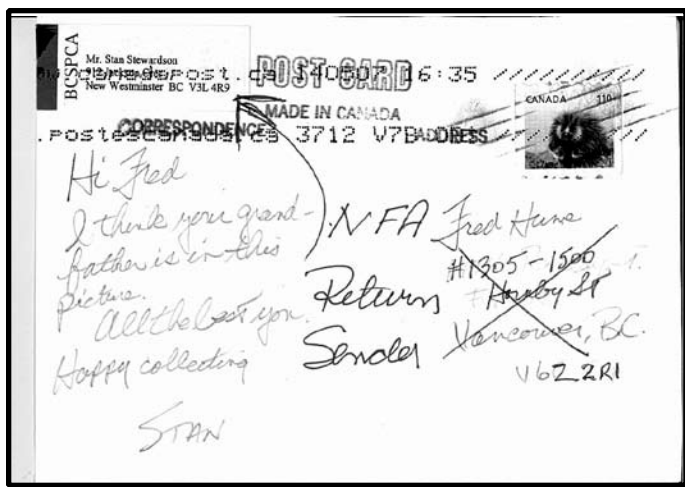 BCSPCA
Mr. Stan Stewardson
New Westminster BC V3L 4R9
POST CARD
w.canadapost.ca 140507 16:35
MADE IN CANADA
CORRESPONDENCE
ADDRESS
.postescanada.ca 3712 V7B
CANADA 110
Hi Fred
I think your grand-
father is in this
picture.
All the best you.
Happy collecting
STAN
NFA
Return
Sender
Fred Hume
#1305-1500
Hornby St
Vancouver, BC.
V6Z 2R1